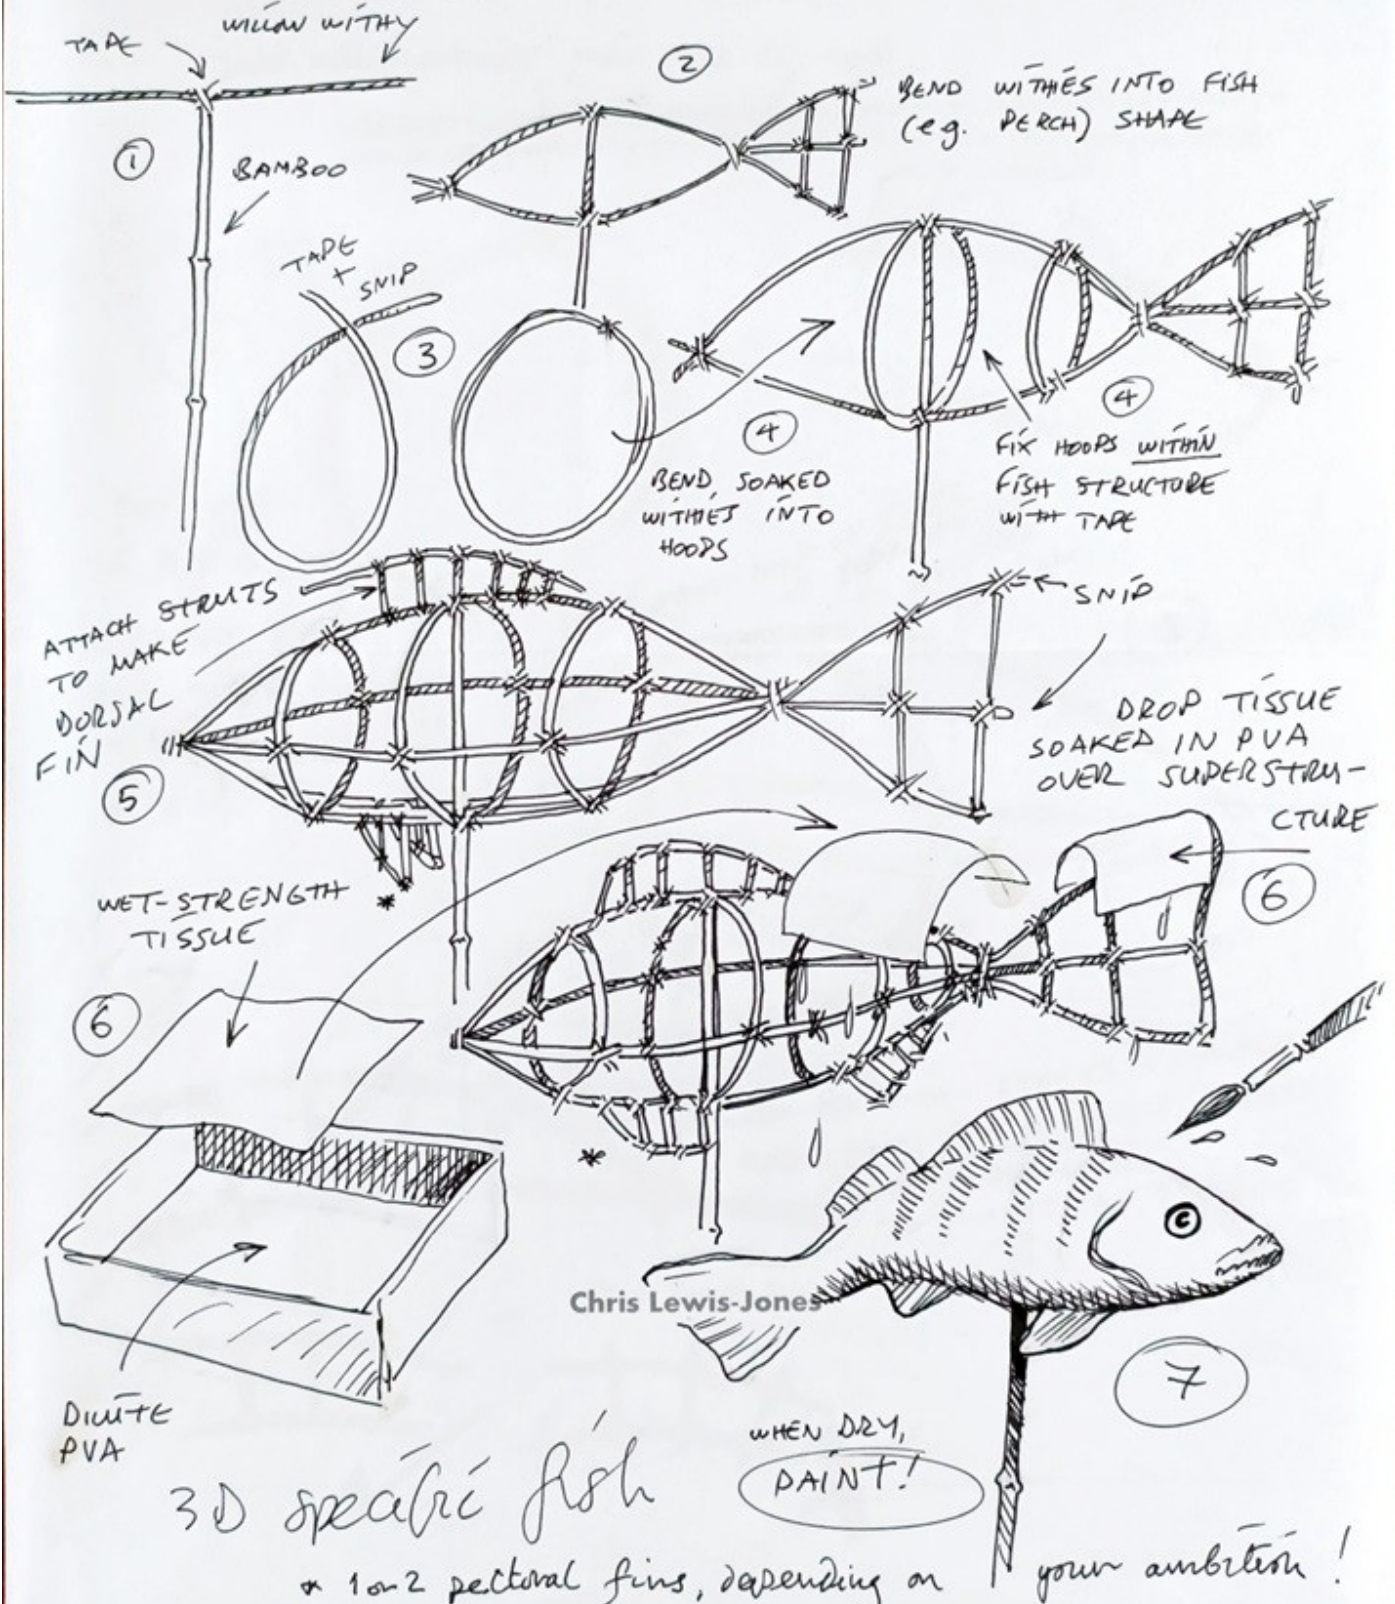 TAPE
WILLOW WITHY
1
BAMBOO
2
BEND WITHIES INTO FISH
(e.g. PERCH) SHAPE
TAPE
+
SNIP
3
4
BEND SOAKED
WITHIES INTO
HOOPS
4
FIX HOOPS WITHIN
FISH STRUCTURE
WITH TAPE
ATTACH STRUTS
TO MAKE
DORSAL
FIN
5
*
SNIP
DROP TISSUE
SOAKED IN PVA
OVER SUPERSTRU-
CTURE
6
WET-STRENGTH
TISSUE
6
*
DILUTE
PVA
Chris Lewis-Jones
7
WHEN DRY,
PAINT!
3D specific fish
* 1 or 2 pectoral fins, depending on your ambition!